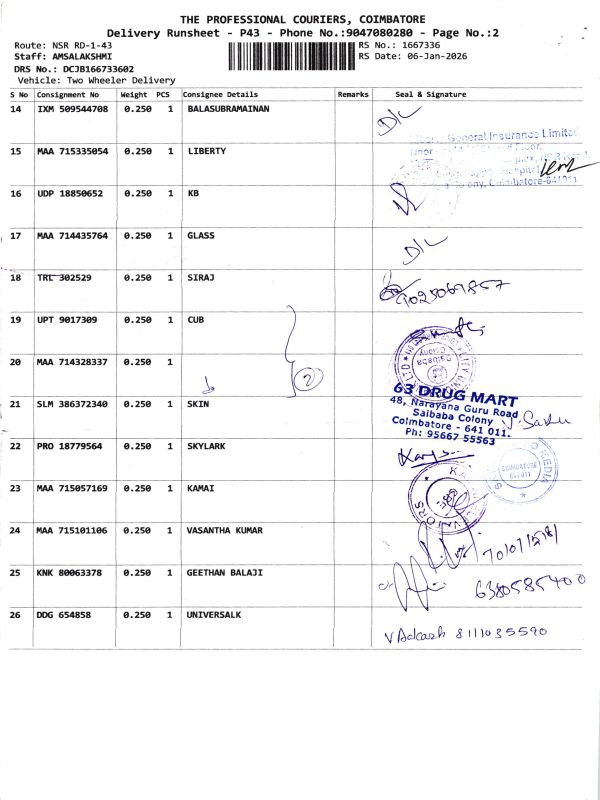 THE PROFESSIONAL COURIERS, COIMBATORE
Delivery Runsheet - P43 - Phone No.:9047080280 - Page No.:2
Route: NSR RD-1-43 RS No.: 1667336
Staff: AMSALAKSHMI RS Date: 06-Jan-2026
DRS No.: DCJB166733602
Vehicle: Two Wheeler Delivery
S No Consignment No Weight PCS Consignee Details Remarks Seal & Signature
14 IXM 509544708 0.250 1 BALASUBRAMAINAN D/L
General Insurance Limited
15 MAA 715335054 0.250 1 LIBERTY
Coimbatore-641011
16 UDP 18850652 0.250 1 KB
17 MAA 714435764 0.250 1 GLASS D/L
18 TRL 302529 0.250 1 SIRAJ 9025069857
19 UPT 9017309 0.250 1 CUB
Saibaba Colony
20 MAA 714328337 0.250 1 2
63 DRUG MART
48, Narayana Guru Road
Saibaba Colony
Coimbatore - 641 011.
Ph: 95667 55563
21 SLM 386372340 0.250 1 SKIN
22 PRO 18779564 0.250 1 SKYLARK
COIMBATORE
641 011
MEDIA
23 MAA 715057169 0.250 1 KAMAI
24 MAA 715101106 0.250 1 VASANTHA KUMAR
25 KNK 80063378 0.250 1 GEETHAN BALAJI 6380585400
26 DDG 654858 0.250 1 UNIVERSALK
8111035590